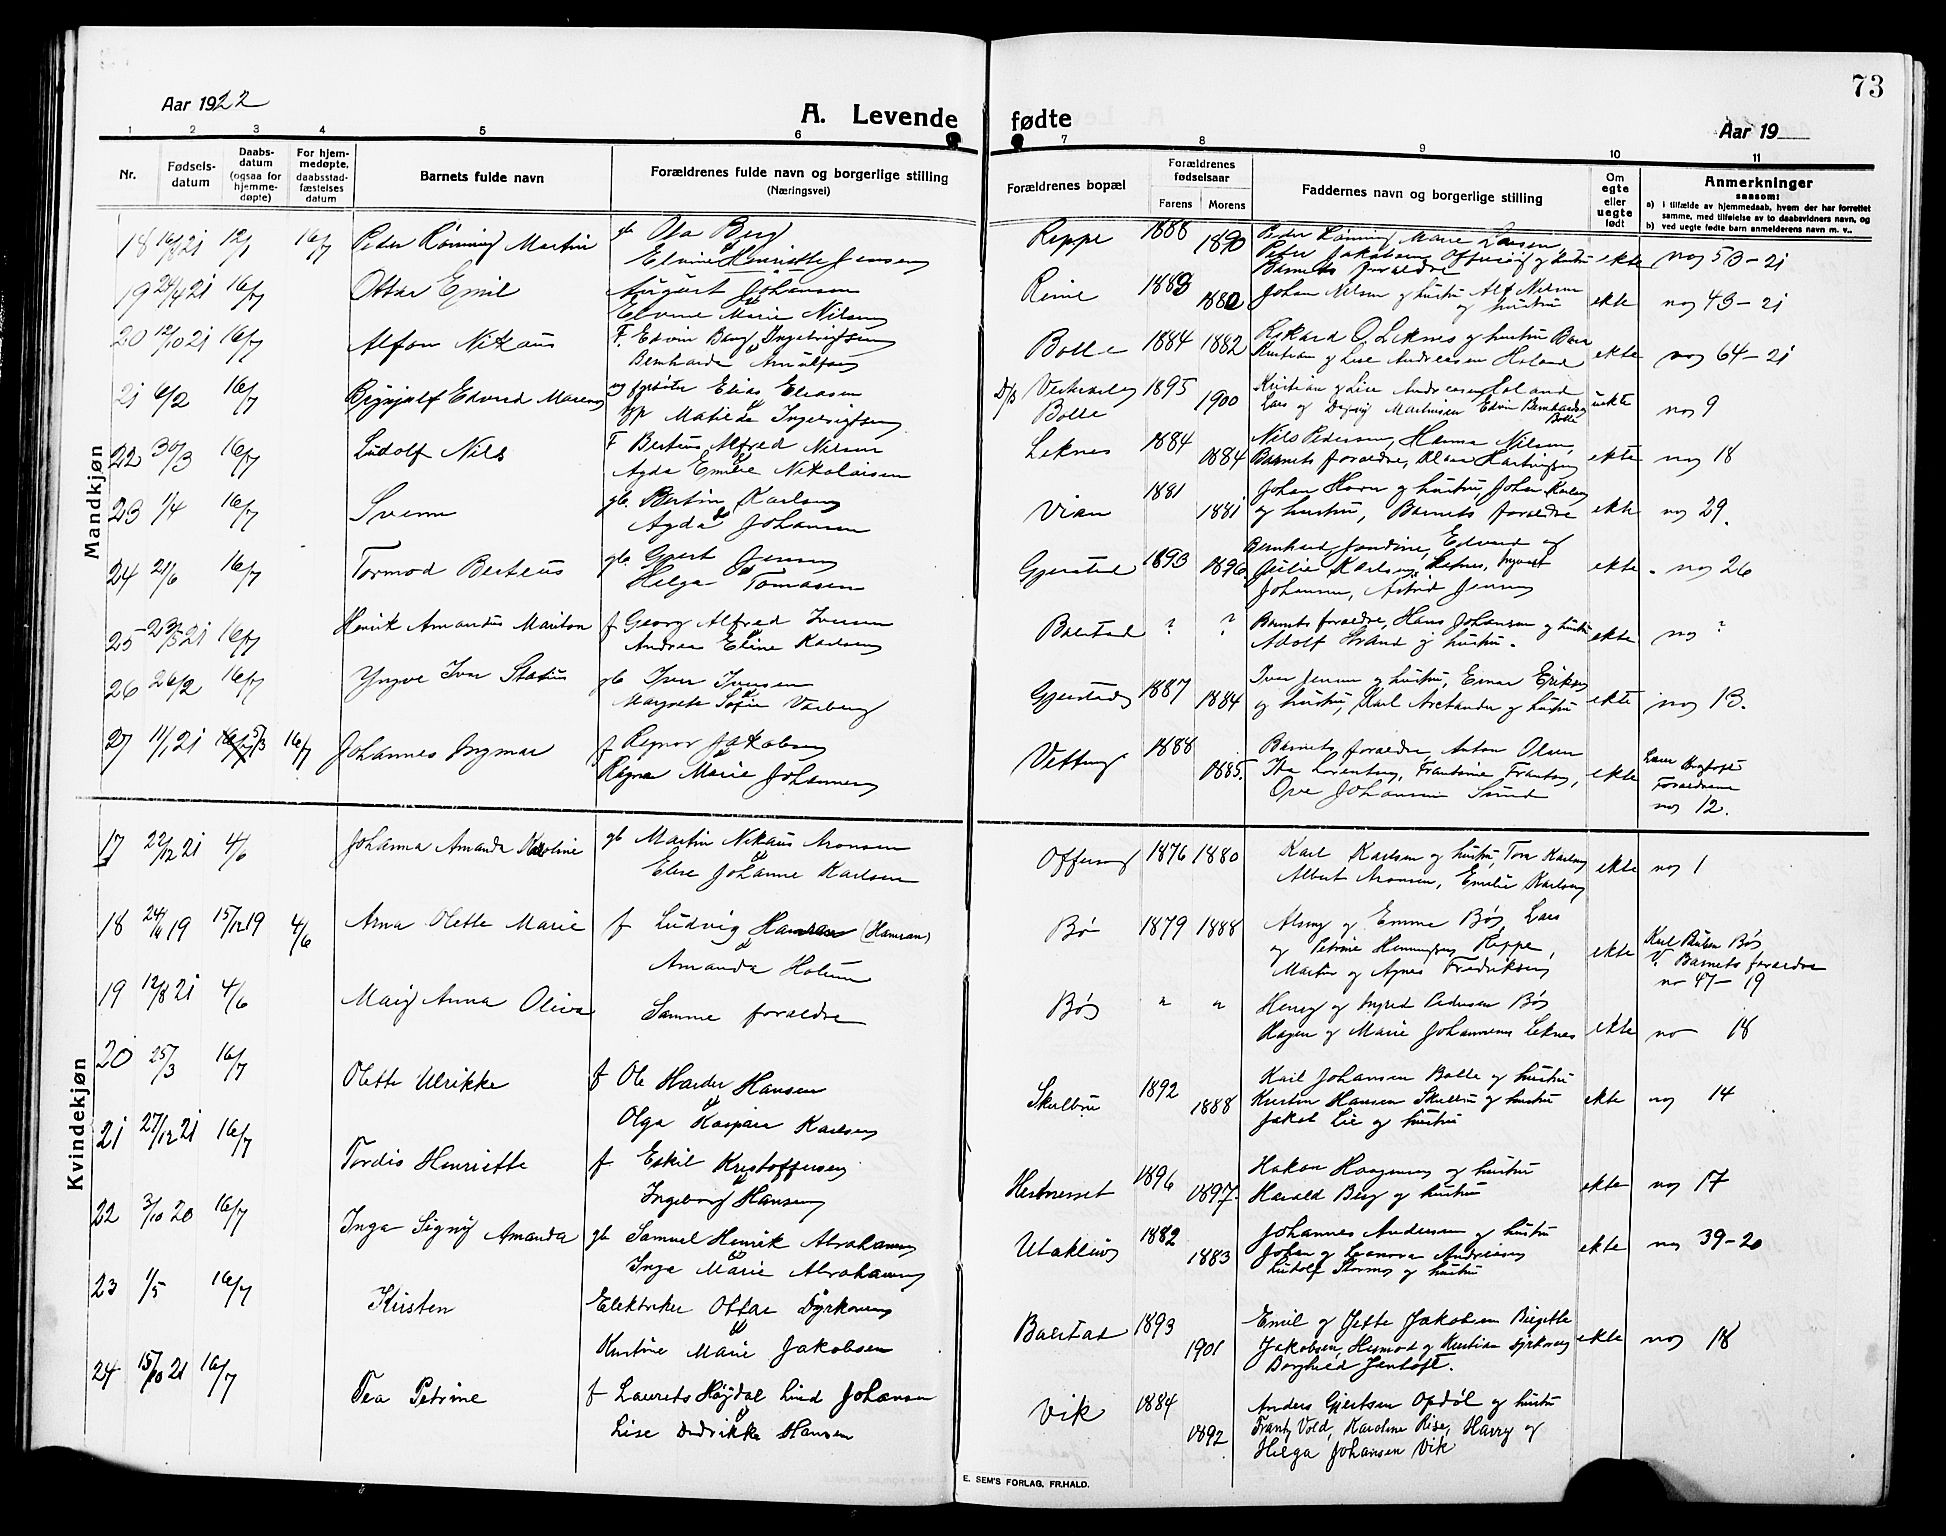 73
Aar 1922
A. Levende fødte
Aar 19
1 2 3 4 5 6 7 8 9 10 11
Nr.
Fødsels-
datum
Daabs-
datum
(ogsaa for
hjemme-
døpte)
For hjem-
medøpte,
daabsstad-
fæstelses
datum
Barnets fulde navn
Forældrenes fulde navn og borgerlige stilling
(Næringsvei)
Forældrenes bopæl
Forældrenes
fødselsaar
Farens Morens
Faddernes navn og borgerlige stilling
Om
egte
eller
uegte
født
Anmerkninger
saasom:
a) i tilfælde av hjemmedaab, hvem der har forrettet
samme, med tilføielse av to daabsvidners navn, og
b) ved uegte fødte barn anmelderens navn m. v..
Mandkjøn
18 16/7 21 12/1 16/7 Peder Rønning Martin
Ola Berg
Elvine Henriette Jensen
Reppe 1888 1890
Peder Rønning, Marie Larsen,
Peter Jakobsen Offersøy og hustru
Barnets foraldre
ekte no 53-21
19 24/4 21 16/7 Ottar Emil
August Johansen
Elvine Marie Nilsen
Reine 1883 1882
Johan Nilsen og hustru Alf Nilsen
og hustru
ekte no 43-21
20 12/10 21 16/7 Alfon Nikaus
F. Edvin Bang Ingebrigtsen
Bernharda Arnulfsen
Bolle 1884 1882
Rikard O Leknes og hustru
Kristian og Lise Andreassen Holand
ekte no 64-21
21 6/2 16/7 Brynjulf Edvard Marenus
Elias Eliasen
Matilde Ingebrigtsen
Bolle 1895 1900
Kristian og Lise Andreassen Holand
Lars og Dagny Martinsen Edvin Bernhardsen
Bolle
uekte no 9
22 30/3 16/7 Ludolf Nils
F Berteus Alfred Nilsen
Agda Emilie Nikolaisen
Leknes 1884 1884
Nils Pedersen, Hanna Nilsen,
Barnets foraldre, Klara Hartvigsen
ekte no 18
23 1/4 16/7 Svenn
gb. Bertin Karlsen
Agda Johansen
Vian 1881 1881
Johan Horn og hustru, Johan Karlsen
og hustru, Barnets foraldre
ekte no 29.
24 21/6 16/7 Tormod Berteus
gb. Geert Jensen
Helga Tomasen
Gjerstad 1893 1896
Bernhard Jandine, Edvard og
Julie Karlsen, Leknes, Ingvart
Johansen, Astrid Jensen
ekte no 26
25 23/5 21 16/7 Henrik Amandus Mariton
f Georg Alfred Iversen
Andrea Eline Karlsen
Balstad ? ?
Barnets foraldre, Hans Johansen og hustru
Adolf Strand og hustru.
ekte no ?
26 26/2 16/7 Yngve Ivar Statius
gb Iver Iversen
Margrete Sofie Varberg
Gjerstad 1887 1884
Iver Jensen og hustru, Einar Eriksen
og hustru, Karl Arctander og hustru
ekte no 13.
27 11/1 21 5/3 16/7 Johannes Ingmar
f Ragnor Jakobsen
Ragna Marie Johannesen
Vetting 1888 1885.
Barnets foraldre Anton Olsen
Ida Lorentsen, Frantsine Frantsen,
Ove Johansen Sund
ekte
Foraldrene
no 12.
Kvindekjøn
17 22/12 21 4/6 Johanna Amanda Karoline
gb Martin Nikaus Aronsen
Elise Johanne Karlsen
Offersøy 1876 1880
Karl Karlsen og hustru, Tora Karlsen
Albert Aronsen, Emilie Karlsen
ekte no 1
18 24/11 19 15/12 19 4/6 Arna Olette Marie
f Ludvig Hamran (Hamran)
Amanda Holum
Bø 1879 1888
Emma Bø, Lars
og Petrine Henningsen Reppe,
Martin og Agnes Fredriksen
ekte
Karl Bø
v. Barnets foraldre
no 47-19
19 12/8 21 4/6 Maiy Anna Oliva
Samme foraldre
Bø " "
Henry og Ingrid Pedersen Bø
Hagen og Marie Johannesen Leknes
ekte no 18
20 25/3 16/7 Olette Ulrikke
f Ole Harder Hansen
Olga Kaspara Karlsen
Skulbru 1892 1888
Karl Johansen Bolle og hustru
Kristen Hansen Skulbru og hustru
Jakob Lie og hustru
ekte no 14
21 27/12 21 16/7 Tordis Henriette
f Eskil Kristoffersen
Ingeborg Hansen
Hestnesset 1896 1897.
Hakon Haagensen og hustru
Harald Berg og hustru
ekte no 17
22 3/10 20 16/7 Inga Signy Amanda
gb Samuel Henrik Abrahamsen
Inga Marie Abrahamsen
Utakleiv 1882 1883
Johannes Andersen og hustru
Johan og Leonora Andreassen
Ludolf Stormo og hustru
ekte no 39-20
23 1/5 16/7 Kirsten
Elektriker Ottar Dyrkoren
Kristine Marie Jakobsen
Balstad 1893 1901
Emil og Jette Jakobsen Birgitte
Jakobsen, Hermod og Kristian Dyrkoren
Borghild Jentoft.
ekte no 18
24 15/10 21 16/7 Tea Petrine
f Laurets Høydal Lind Johansen
Lise Dedrikke Hansen
Vik 1884 1892
Anders Gjertsen Opdøl og hustru
Frantz Vold, Karoline Rise, Harry og
Helga Johansen Vik
E. SEM'S FORLAG. FR.HALD.